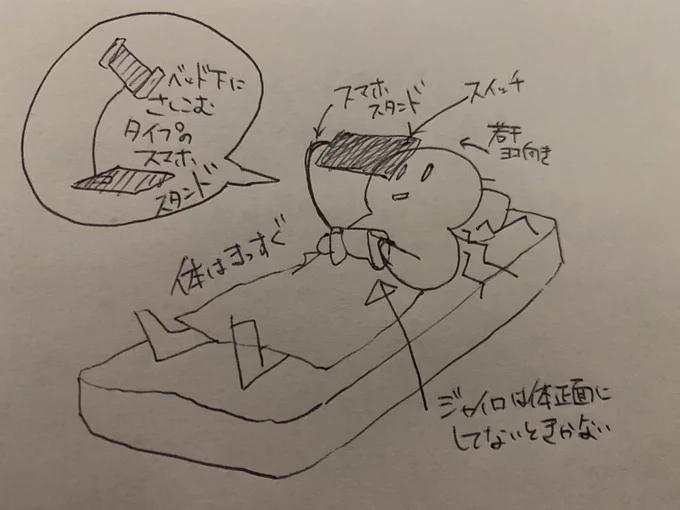 ベッド下に
さしこむ
タイプの
スマホ
スタンド
スマホ
スタンド
スイッチ
若干
ヨコ向き
体はまっすぐ
ジャイロは体正面に
してないときかない